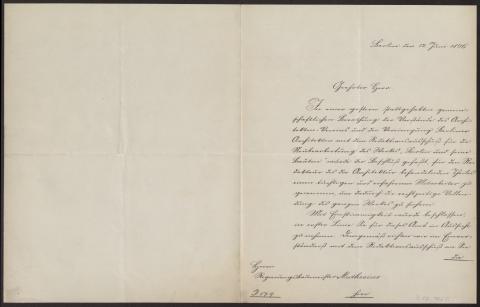 Berlin den 12 Juni 1896
Geehrter Herr.
In einer gestern stattgehabten gemein-
schaftlichen Berathung der Vorstände des Archi-
tekten-Vereins und der Vereinigung Berliner
Architekten mit dem Redaktionsausschuß für die
Neubearbeitung des Werkes „Berlin und seine
Bauten" wurde der Beschluß gefaßt, für den Re-
dakteur des die Architektur behandelnden Theiles
einen tüchtigen und erfahrenen Mitarbeiter zu
gewinnen, um dadurch die rechtzeitige Vollen-
dung des ganzen Werkes zu sichern.
Mit Einstimmigkeit wurde beschlossen,
in erster Linie Sie für dieses Amt in Aussicht
zu nehmen. Demgemäß richten wir im Einver-
ständniß mit dem Redaktionsausschuß an Sie
die
Herrn
Regierungsbaumeister Muthesius
hier